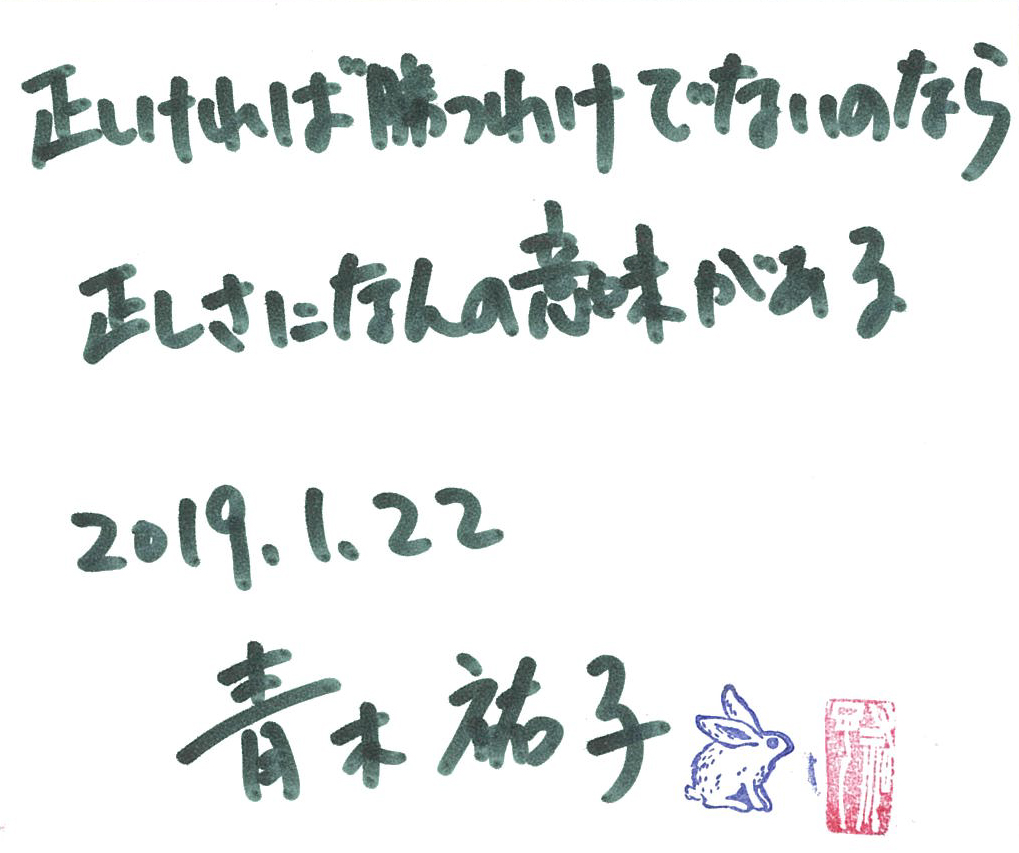 正しければ勝つわけでないのなら
正しさになんの意味がある
2019.1.22
青木祐子